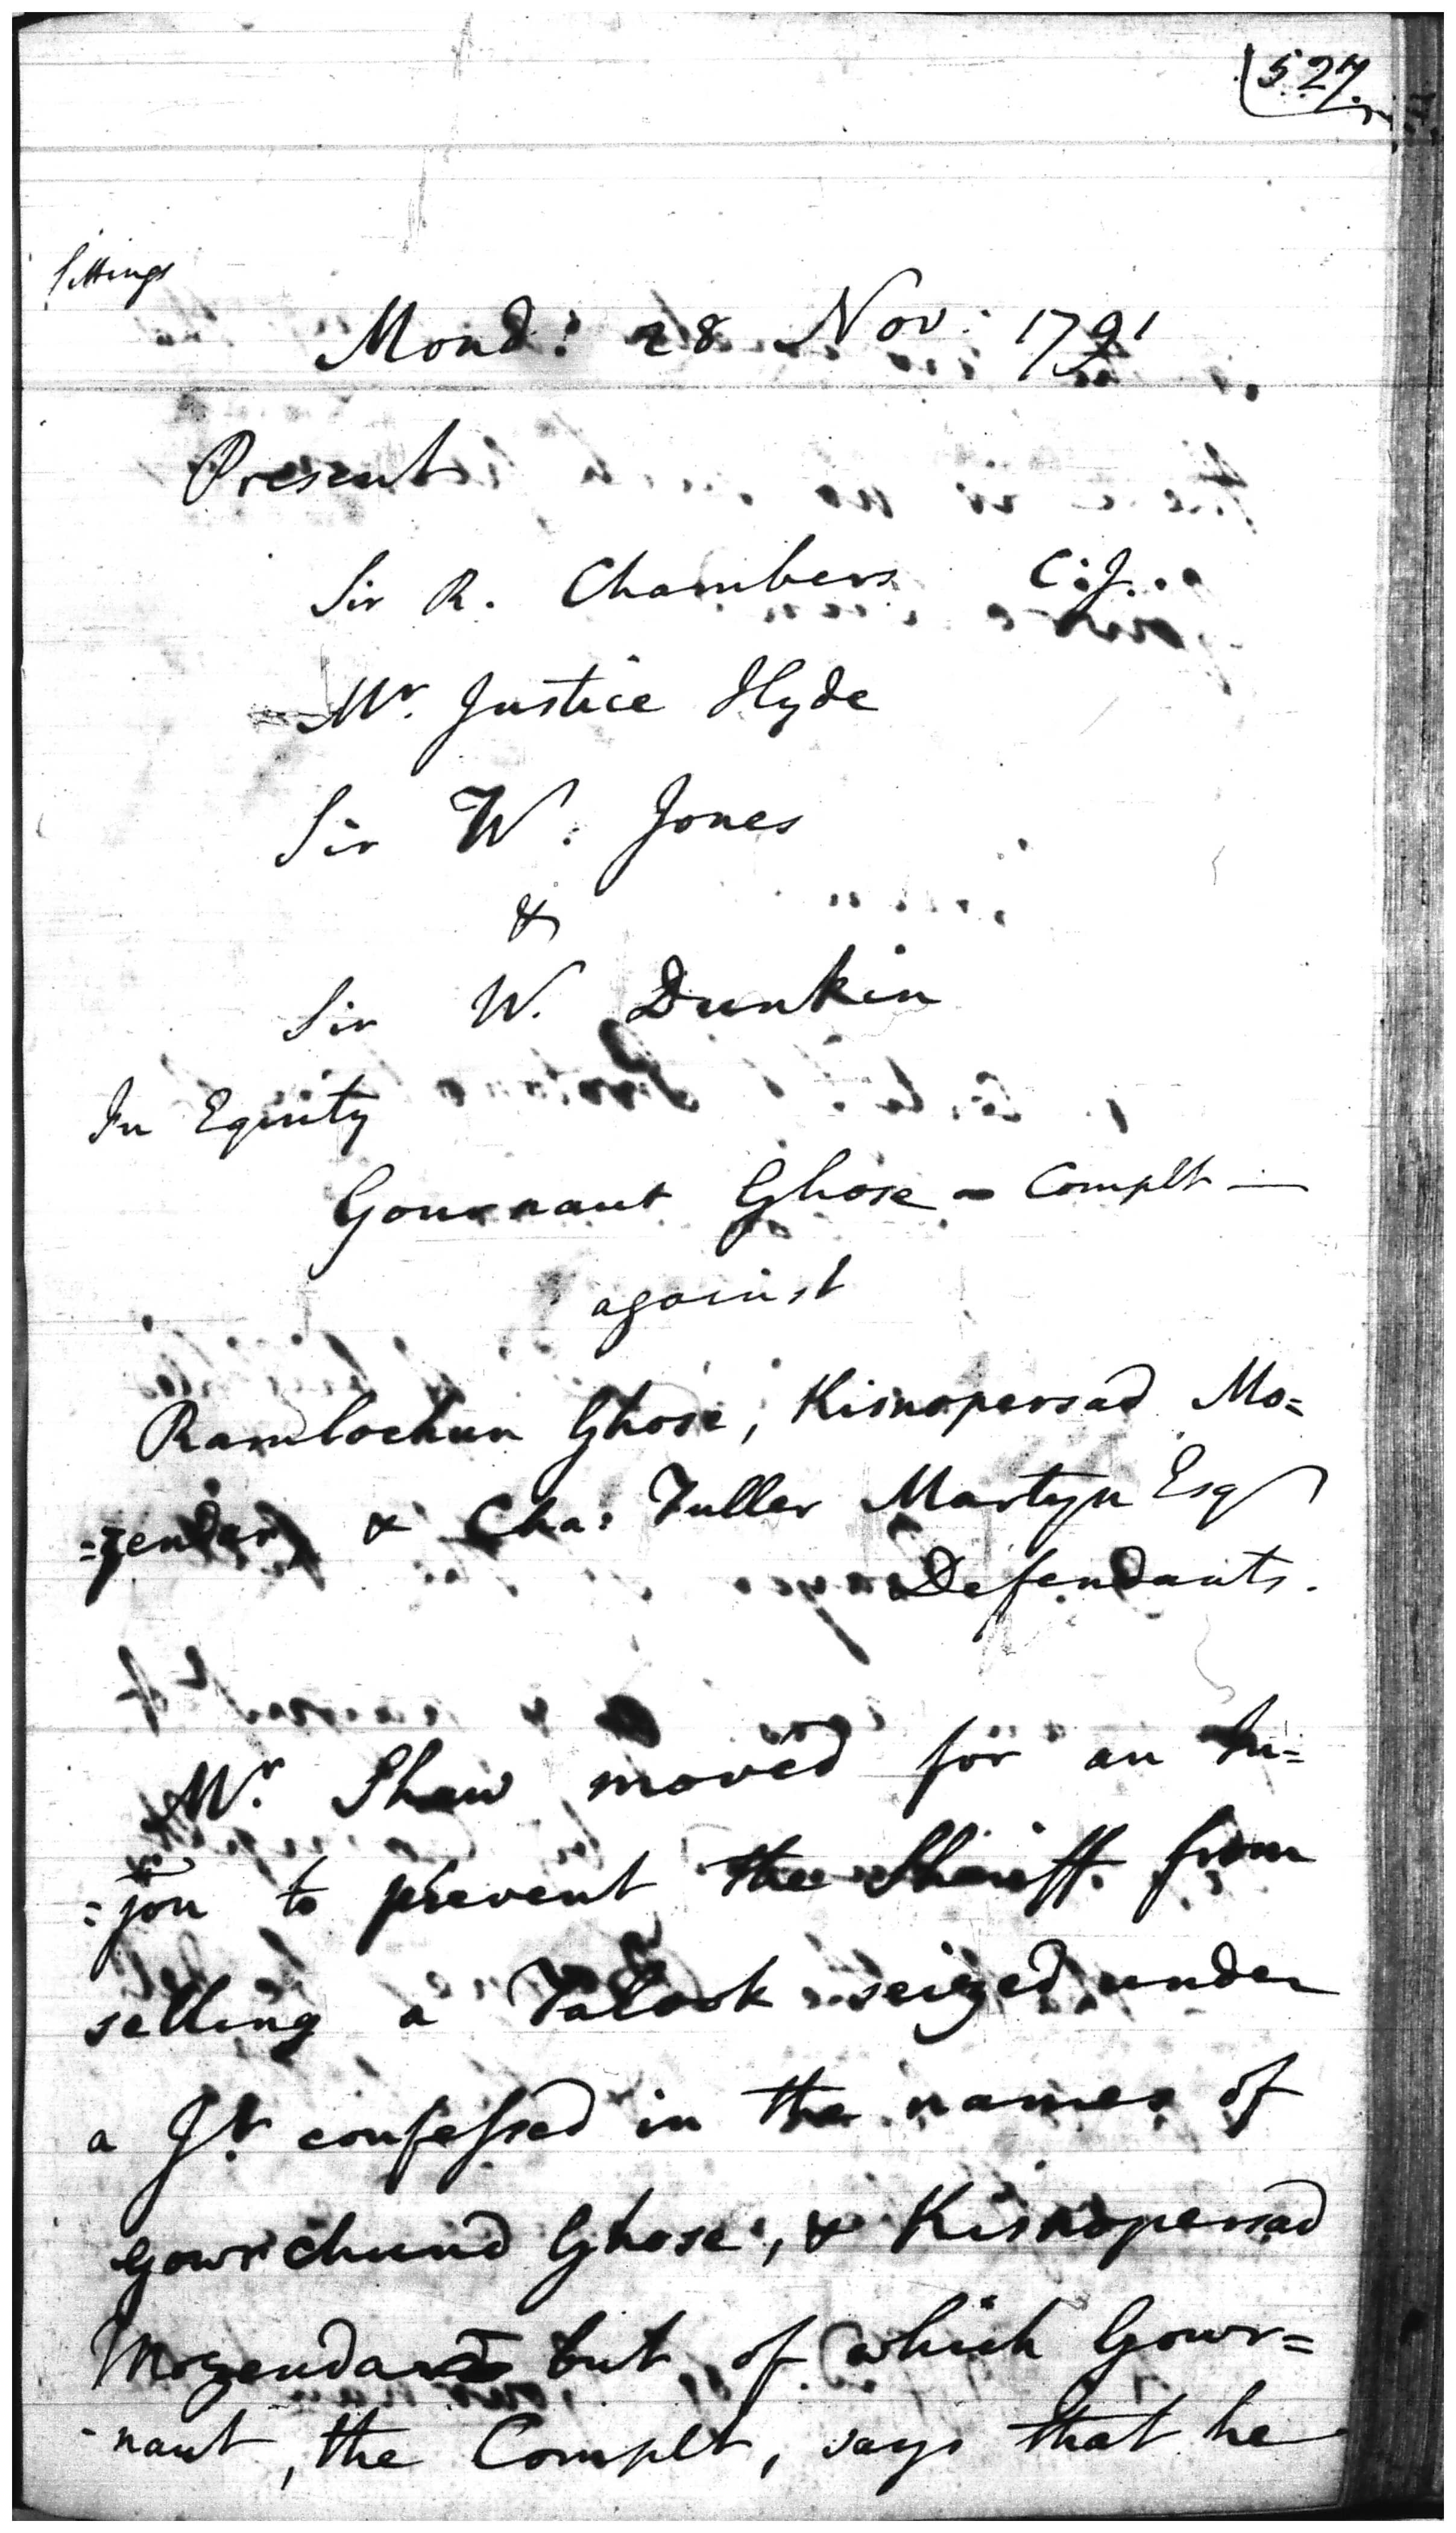 527
Sittings
Mond: 28 Nov: 1791
Present
Sir R. Chambers C:J.
Mr. Justice Hyde
Sir W. Jones
&
Sir W. Dunkin
In Equity
Gournaut Ghose - Complt —
against
Ramlochun Ghose, Kisnopersad Mo=
=zendar & Cha: Fuller Martyn Esq
Defendants.
Mr. Shaw moved for an In=
=jon to prevent the Sheriff from
selling a Talook seized under
a Jt. confessed in the names of
Gowrchund Ghose, & Kisnopersad
Mozendar but of which Gowr=
-naut, the Complt, says that he